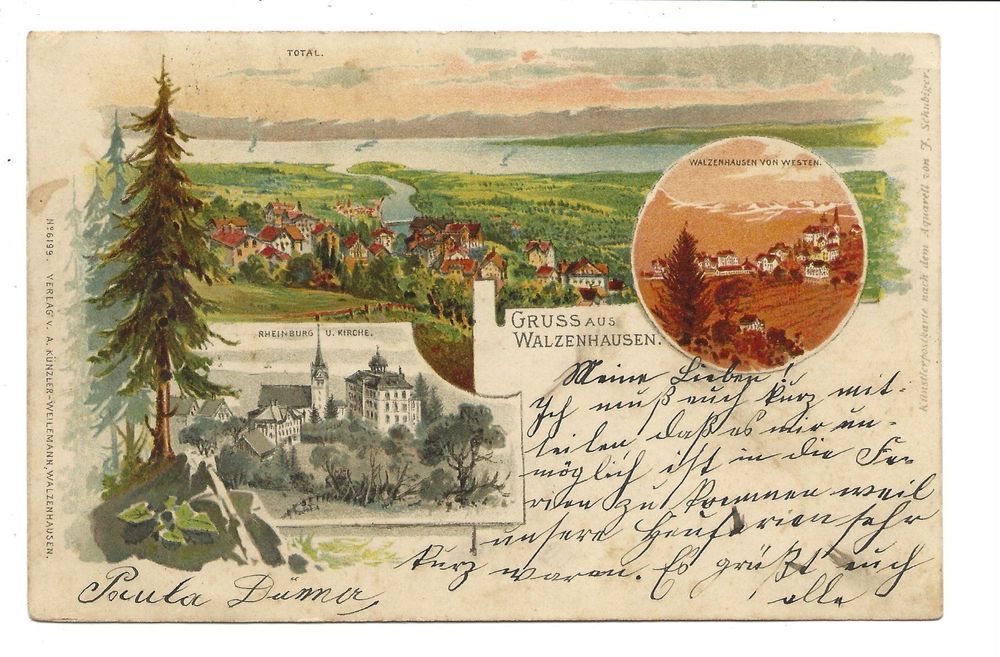 TOTAL.
WALZENHAUSEN VON WESTEN.
RHEINBURG U. KIRCHE.
GRUSS AUS
WALZENHAUSEN.
Nº 6199. VERLAG V. A. KÜNZLER-WEILEMANN, WALZENHAUSEN.
Künstlerpostkarte nach dem Aquarell von J. Schubiger.
Meine Lieben!
Ich muß euch kurz mit-
teilen daß es mir un-
möglich ist in die Fe-
rien zu kommen weil
unsere Heuferien sehr
kurz waren. Es grüßt euch
alle
Paula